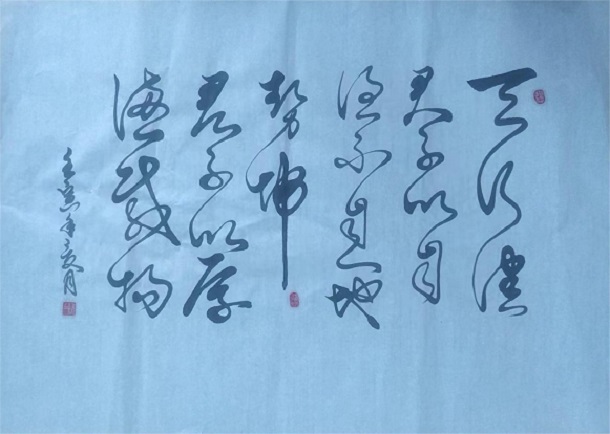 天行健
君子以自
强不息地
势坤
君子以厚
德载物
壬寅年夏月